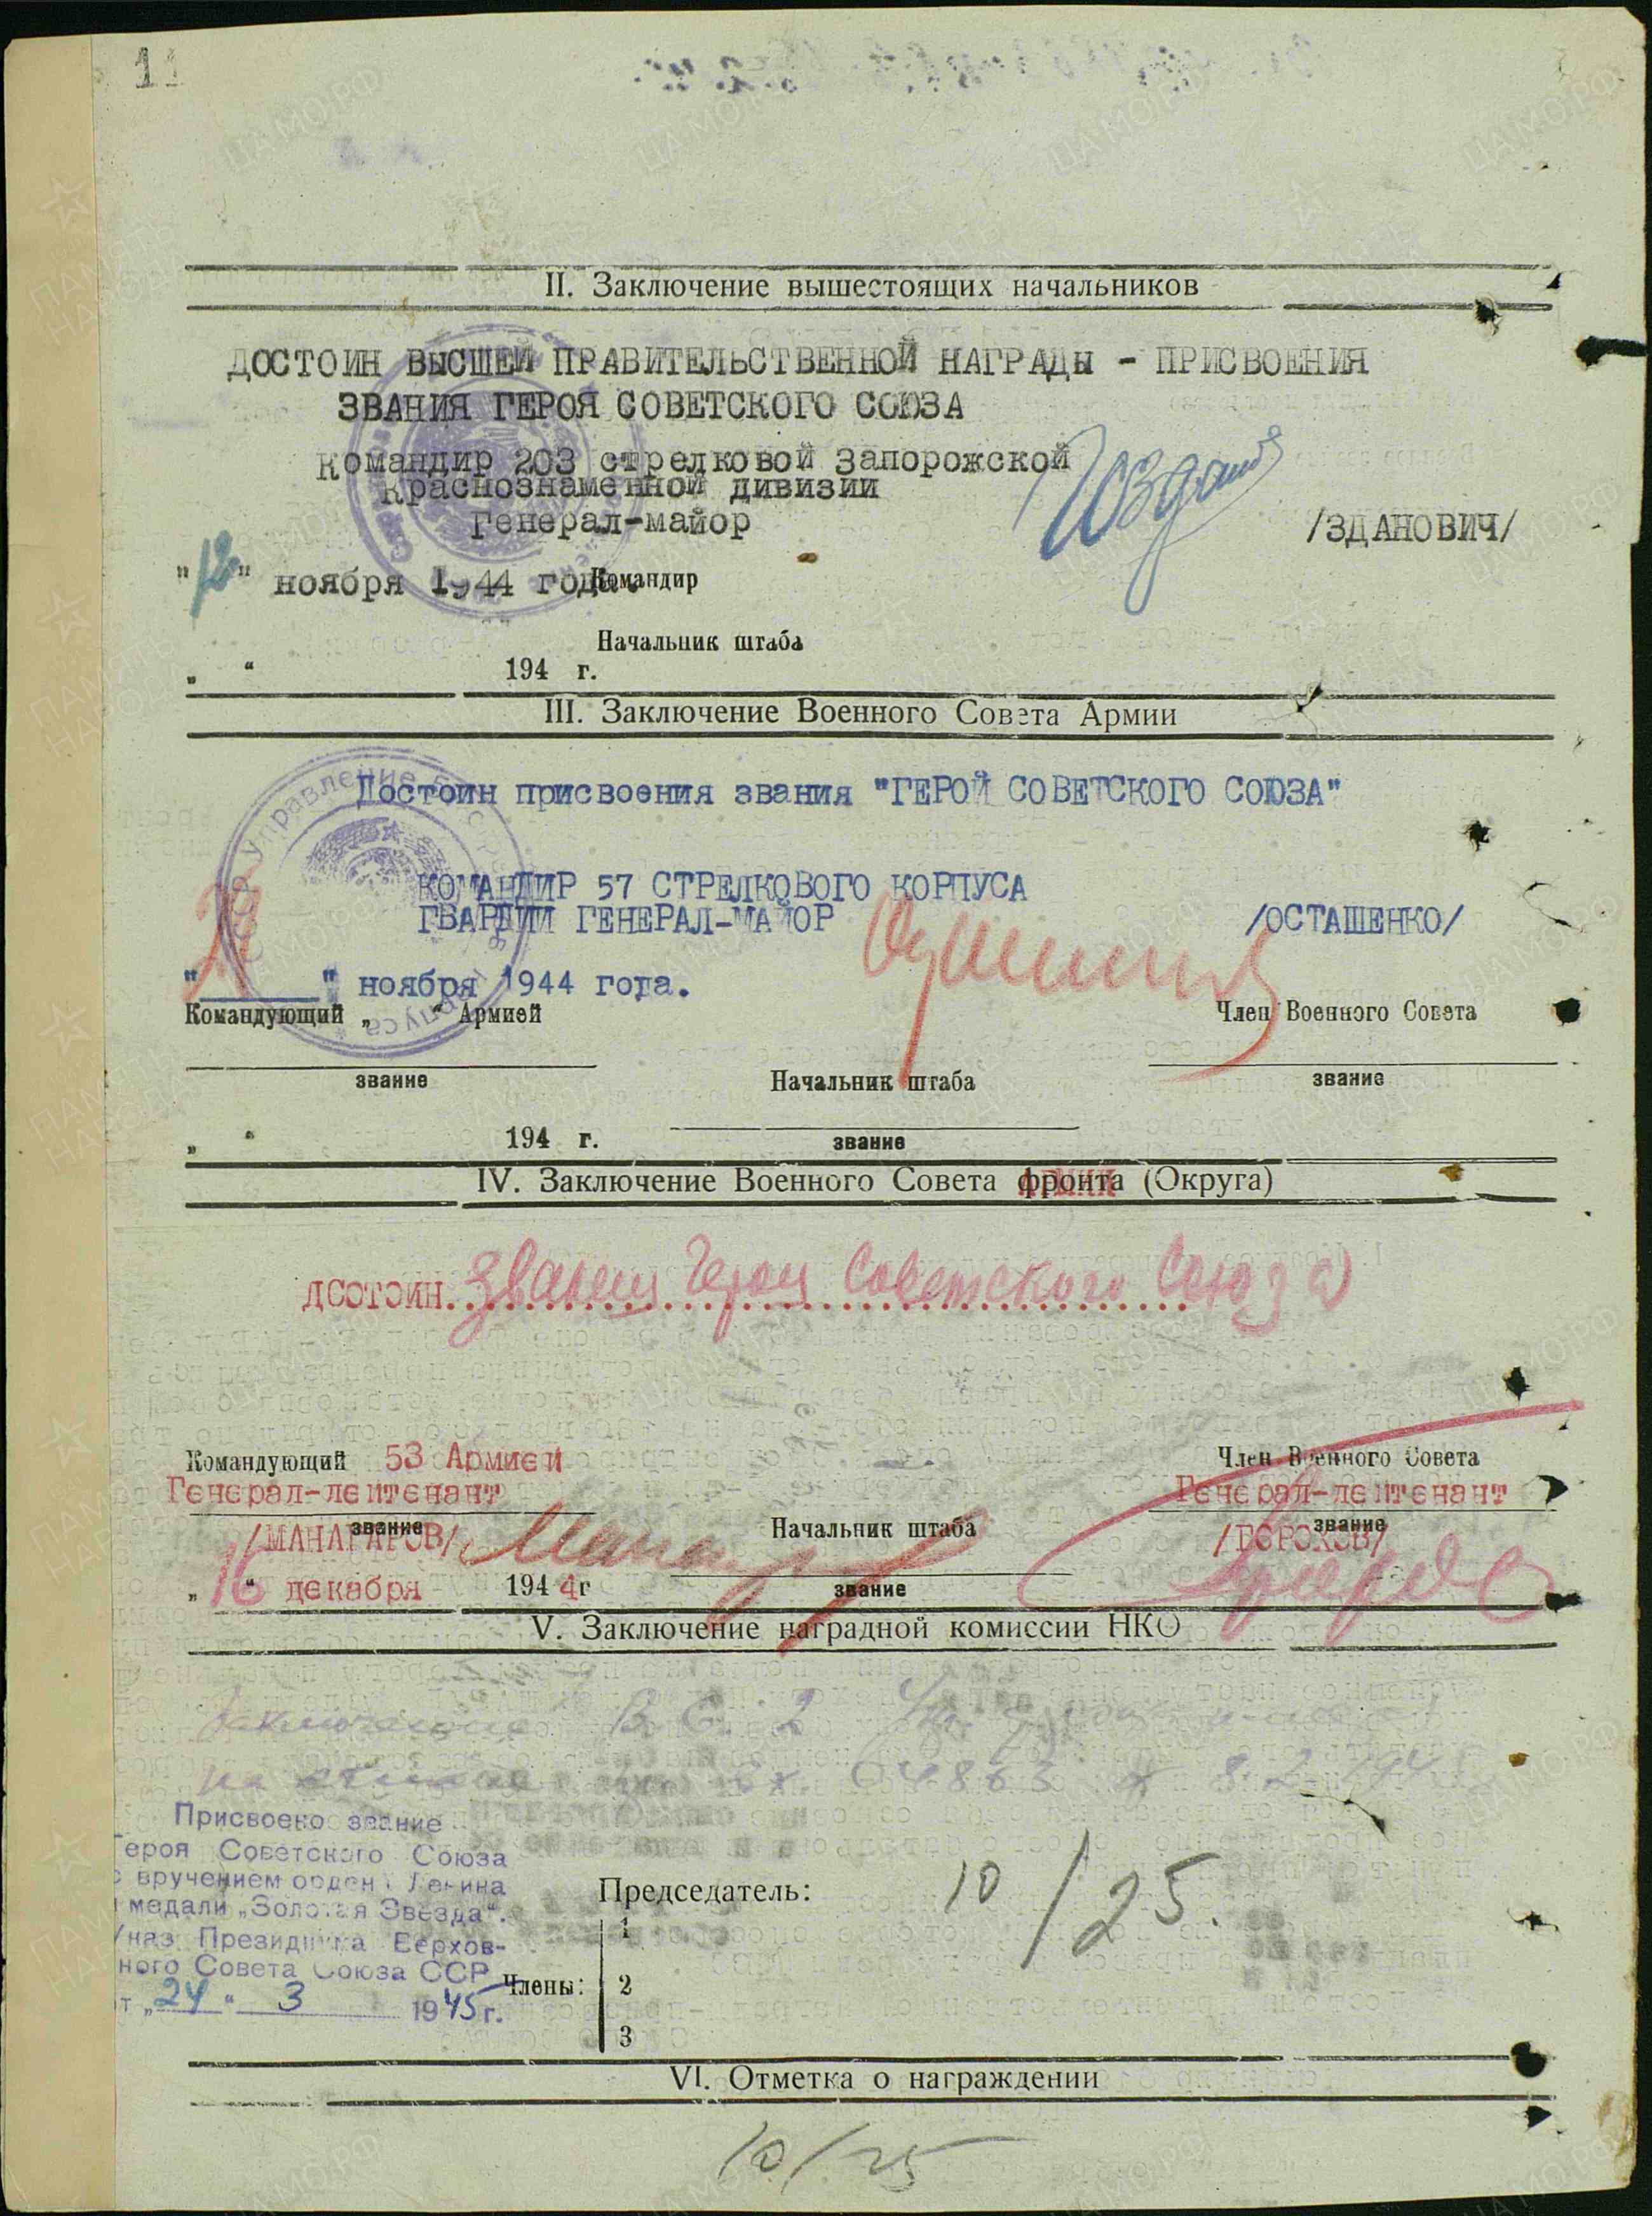 11
II. Заключение вышестоящих начальников
ДОСТОИН ВЫСШЕЙ ПРАВИТЕЛЬСТВЕННОЙ НАГРАДЫ - ПРИСВОЕНИЯ
ЗВАНИЯ ГЕРОЯ СОВЕТСКОГО СОЮЗА
Командир 203 стрелковой Запорожской
Краснознаменной дивизии
Генерал-майор
/ЗДАНОВИЧ/
"12" ноября 1944 года.
Командир
Начальник штаба
„ “ 194 г.
III. Заключение Военного Совета Армии
Достоин присвоения звания "ГЕРОЙ СОВЕТСКОГО СОЮЗА"
КОМАНДИР 57 СТРЕЛКОВОГО КОРПУСА
ГВАРДИИ ГЕНЕРАЛ-МАЙОР /ОСТАШЕНКО/
" " ноября 1944 года.
Командующий „ “ Армией Член Военного Совета
звание Начальник штаба звание
„ “ 194 г. звание
IV. Заключение Военного Совета фронта (Округа)
достоин звания Героя Советского Союза
Командующий 53 Армией Член Военного Совета
Генерал-лейтенант Генерал-лейтенант
звание Начальник штаба звание
/МАНАГАРОВ/ /ГОРОХОВ/
„16“ декабря 1944г звание
V. Заключение наградной комиссии НКО
Присвоено звание
Героя Советского Союза
с вручением ордена Ленина
и медали „Золотая Звезда“.
Указ Президиума Верхов-
ного Совета Союза ССР
от „24“ 3 1945 г.
Председатель: 10/25.
Члены:
1
2
3
VI. Отметка о награждении
10/25